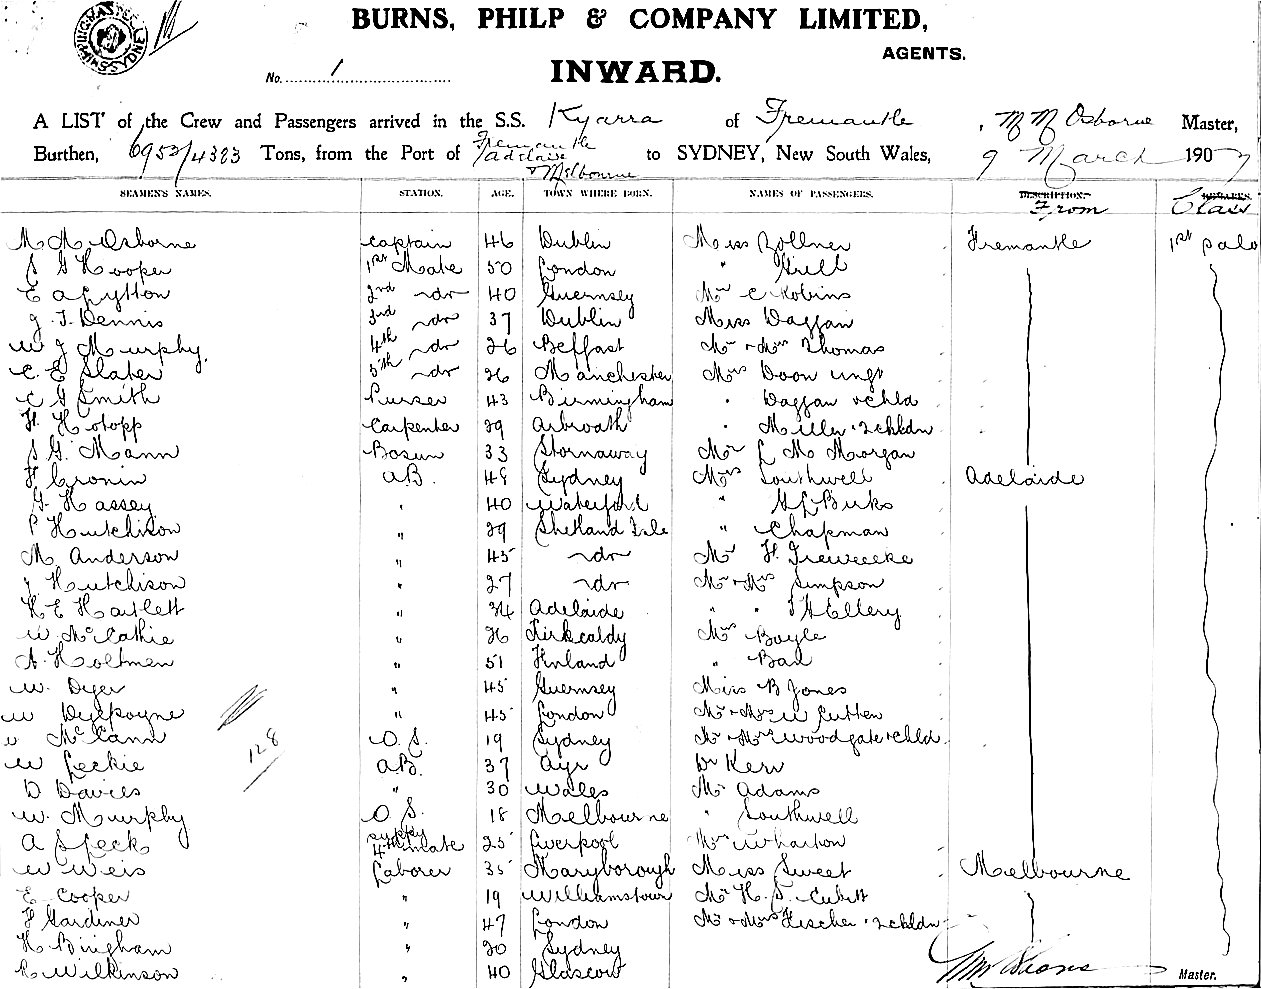 BURNS, PHILP & COMPANY LIMITED,
AGENTS.
No. 1
INWARD.
A LIST of the Crew and Passengers arrived in the S.S. Kyarra of Fremantle, M M Osborne Master,
Burthen, 6953/4383 Tons, from the Port of Fremantle Adelaide & Melbourne to SYDNEY, New South Wales, 9 March 1907
SEAMEN'S NAMES. STATION. AGE. TOWN WHERE BORN. NAMES OF PASSENGERS. DESCRIPTION. From REMARKS. Class
M M Osborne Captain 46 Dublin Miss Zollner Fremantle 1st Palo
S G Hooper 1st Mate 50 London " Grill
E A Lytton 2nd do 40 Guernsey Mr C Robins
J. T. Dennis 3rd do 37 Dublin Miss Daggan
W J Murphy. 4th do 26 Belfast Mr & Mrs Thomas
C. E Slater 5th do 26 Manchester Mrs Doon
C G Smith Purser 43 Birmingham " Daggan & chld
H. Hotopp Carpenter 29 Arbroath " Miller & 2 chldn
S G. Mann Bosun 33 Stornaway Mr L M Morgan
F Cronin A.B. 48 Sydney Mrs Southwell Adelaide
G. Hassey " 40 Waterford " G L Birks
P Hutchison " 29 Shetland Isle " Chapman
M. Anderson " 45 do Mr H. Treweeke
J Hutchison " 27 do Mr & Mrs Simpson
H E Hartlett " 34 Adelaide " " T H Ellery
W. McCathie " 26 Kirkcaldy Mrs Boyle
A. Holtmen " 51 Finland " Bail
W. Dyer " 45 Guernsey Miss B Jones
W Dulpayne " 45 London Mr & Mrs W Cutten
W McCann O. S. 19 Sydney Mr & Mrs Woodgate & chld
W Leckie A.B. 37 Ayr Dr Kerr
128
D Davies " 30 Wales Mr Adams
W. Murphy O. S. 18 Melbourne " Southwell
A Speck 4th mate 25 Liverpool Mrs Wharton
W Weis Laborer 35 Maryborough Miss Sweet Melbourne
E Cooper " 19 Williamstown Mr H. S. Cubitt
F Gardiner " 47 London Mr & Mrs Fischer & 2 chldn
H Bingham " 20 Sydney
R Wilkinson " 40 Glascow
Master.